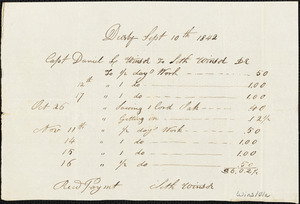 Duxby Sept 10th 1842
Capt Daniel L Winsor to Seth Winsor Dr
To 1/2 days Work — 50
12th " 1 do — 1.00
17 " 1 do — 1.00
Oct 25 " Sawing 1 Cord Oak — 40
" Getting in — 12 1/2
Nov 11th " 1/2 days Work — 50
14 " 1 do — 1.00
15 " 1 do — 1.00
16 " 1/2 do — 50
$6.02 1/2
Recd Payment
Seth Winsor